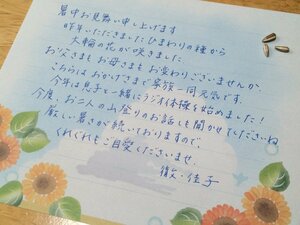 暑中お見舞い申し上げます
昨年いただきましたひまわりの種から
大輪の花が咲きました
お父さまもお母さまもお変わりございませんか。
こちらはおかげさまで家族一同元気です。
今年は息子と一緒にラジオ体操を始めました!
今度、お二人の山登りのお話しも聞かせてくださいね
厳しい暑さが続いておりますので、
くれぐれもご自愛くださいませ。
徹・佳子